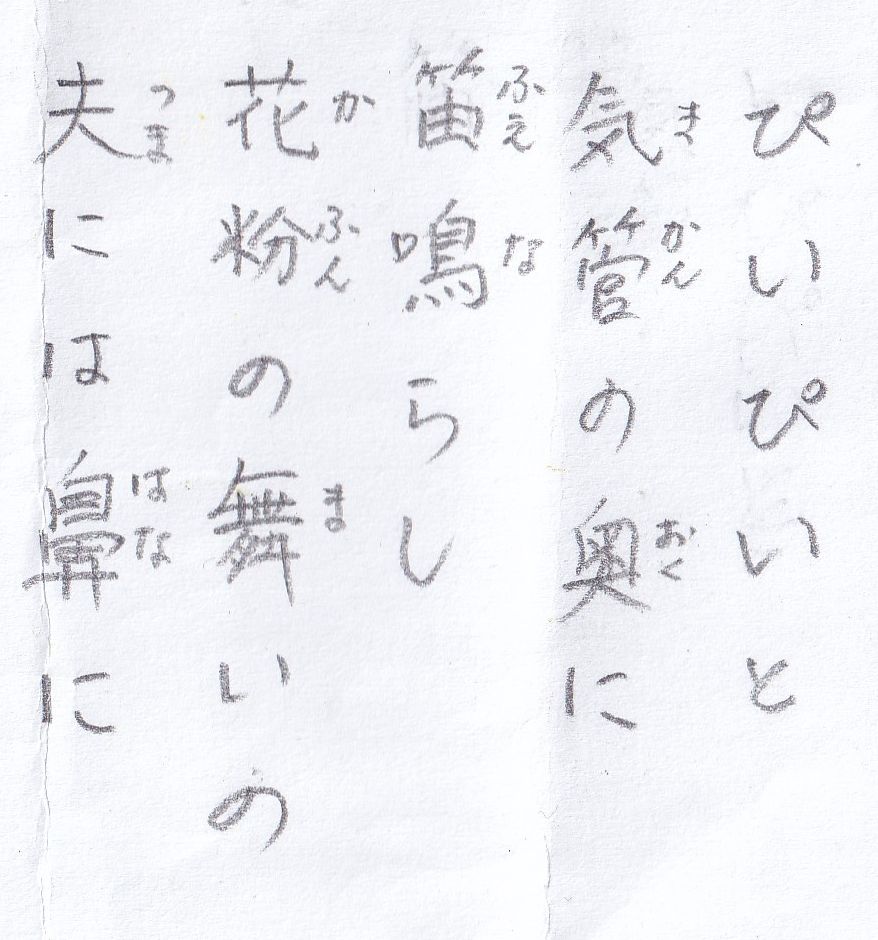 ぴいぴいと
気管の奥に
笛鳴らし
花粉の舞いの
夫には鼻に
きかん
おく
ふえ
な
かふん
ま
つま
はな